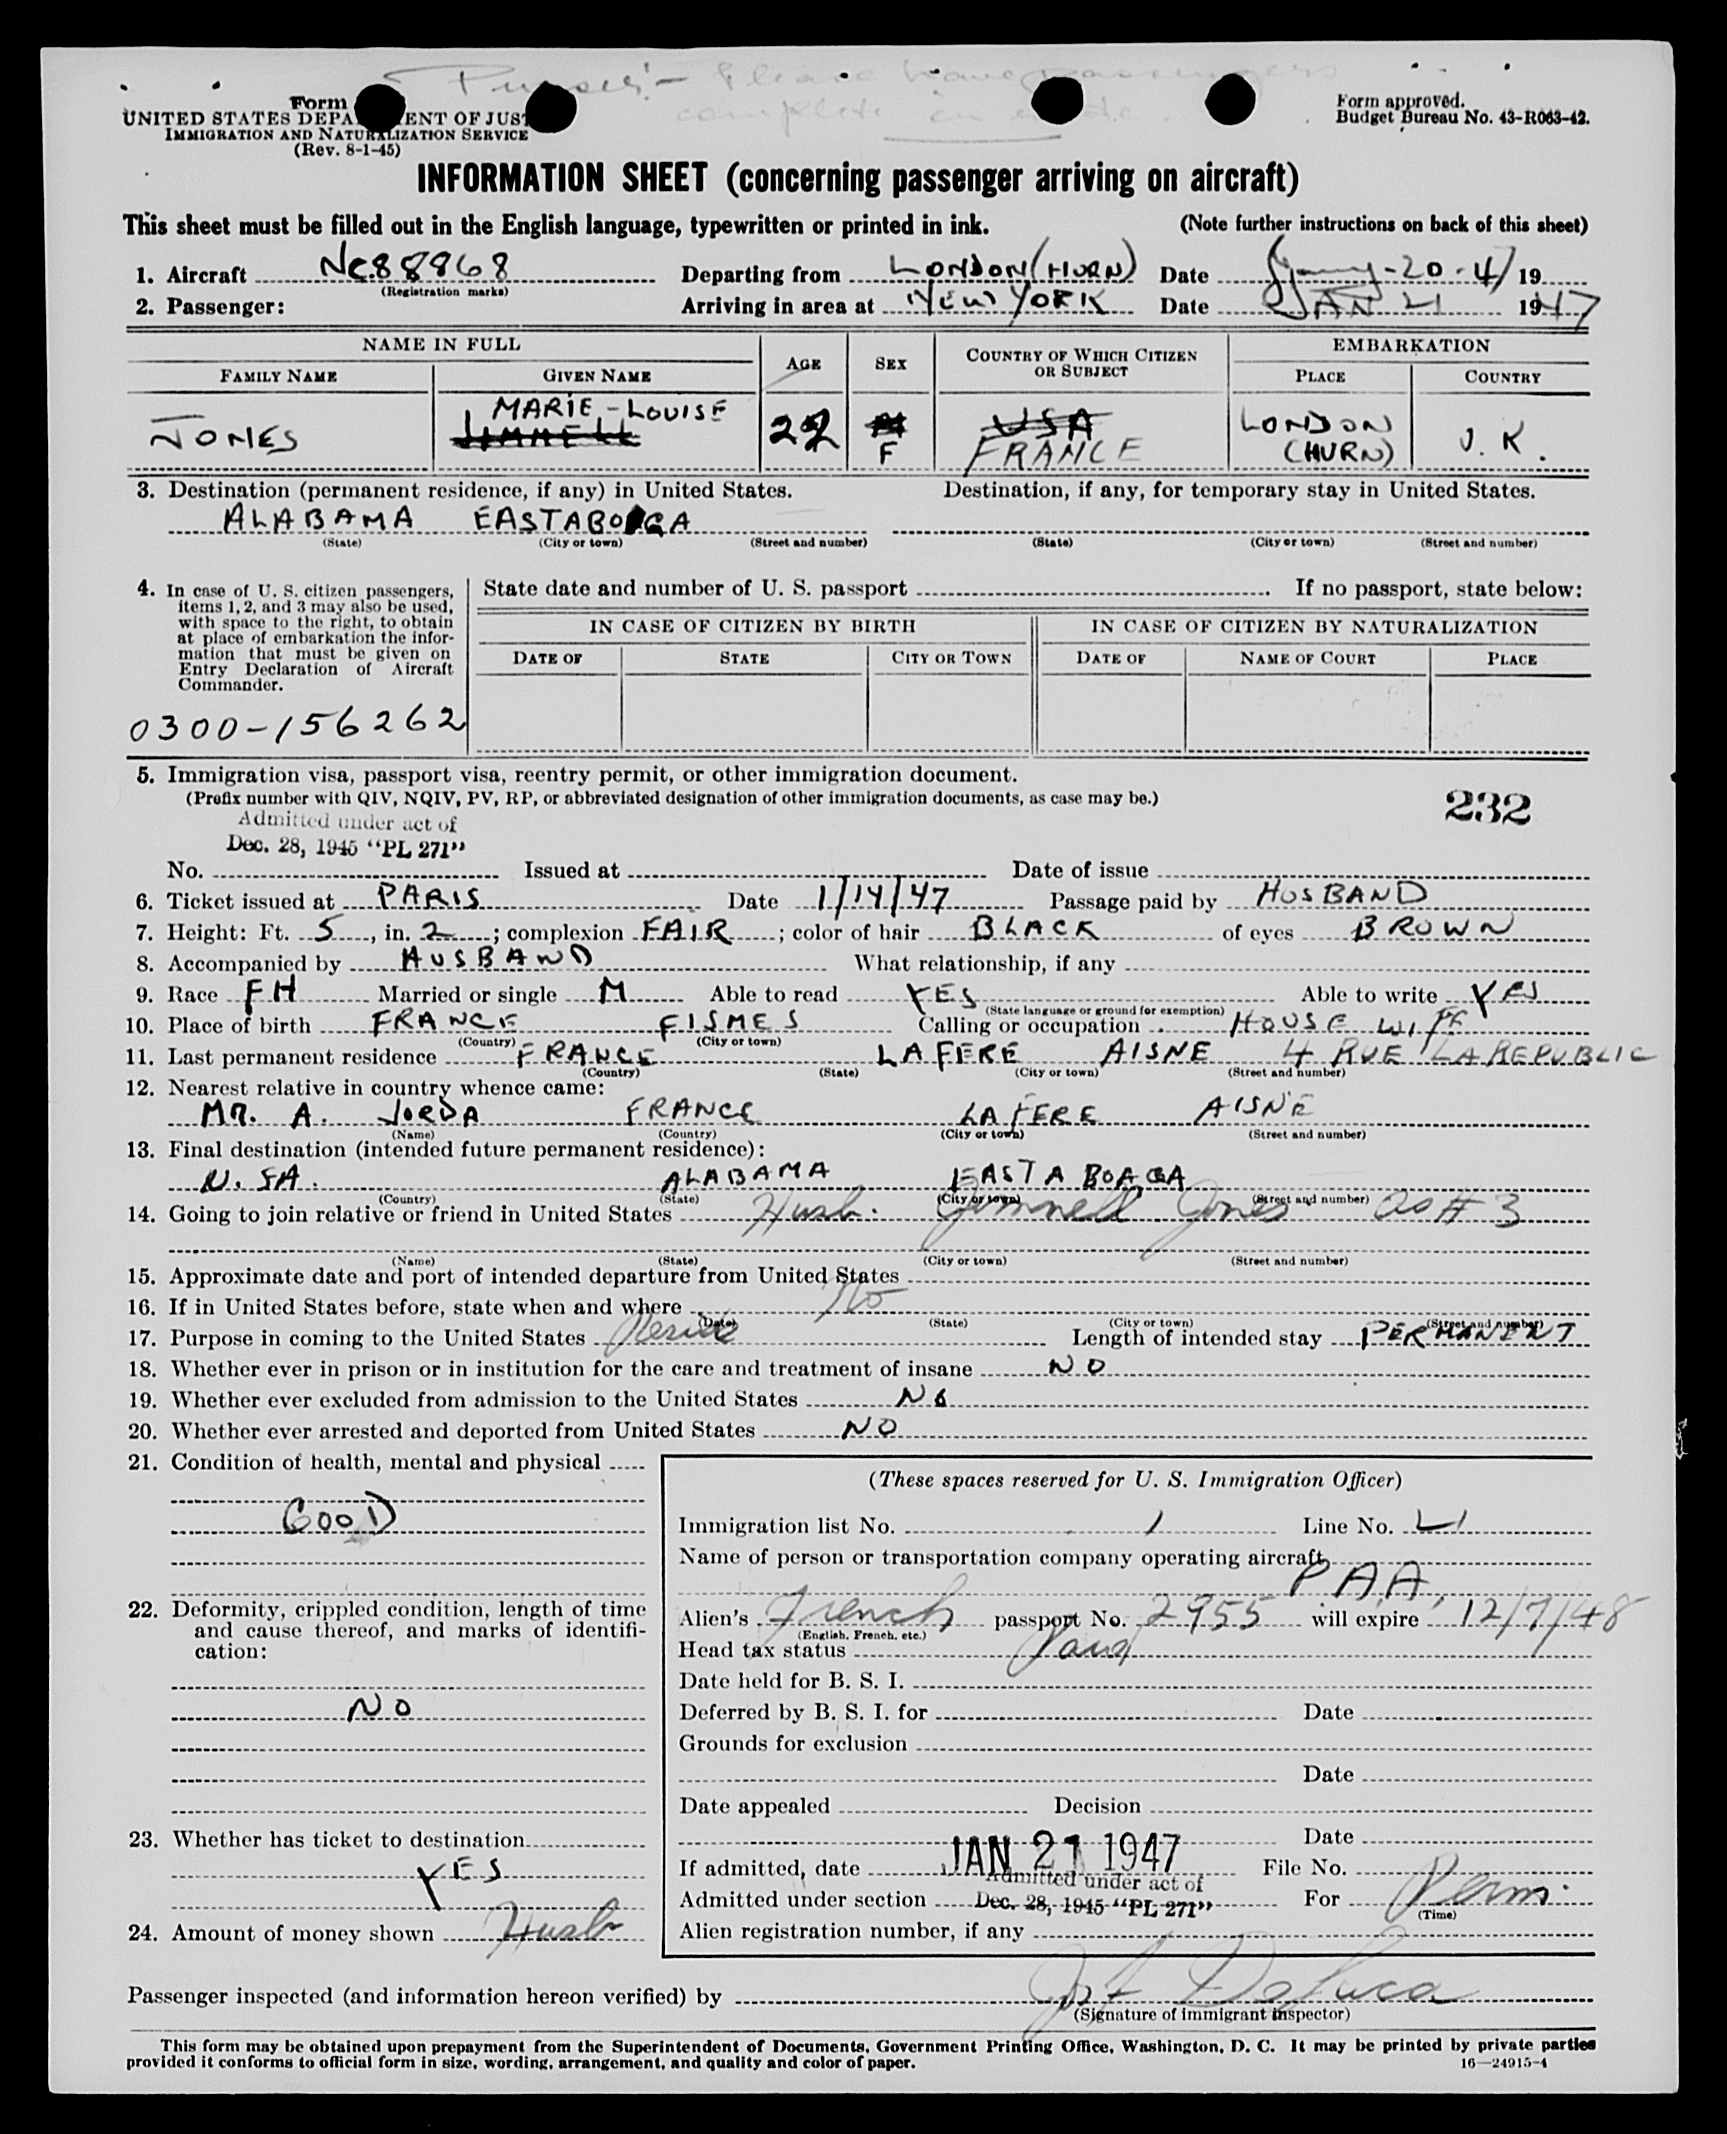 Purser - Please have passengers
complete in ink.
Form
UNITED STATES DEPA ENT OF JUS
IMMIGRATION AND NATURALIZATION SERVICE
(Rev. 8-1-45)
Form approved.
Budget Bureau No. 43-R063-42.
INFORMATION SHEET (concerning passenger arriving on aircraft)
This sheet must be filled out in the English language, typewritten or printed in ink. (Note further instructions on back of this sheet)
1. Aircraft NC88868 Departing from LONDON (HURN) Date 20-4/ 19
(Registration marks)
2. Passenger: Arriving in area at NEW YORK Date JAN 21 1947
NAME IN FULL AGE SEX COUNTRY OF WHICH CITIZEN OR SUBJECT EMBARKATION
FAMILY NAME GIVEN NAME PLACE COUNTRY
MARIE-LOUISE
JONES JIMMELL 22 M USA LONDON U.K.
F FRANCE (HURN)
3. Destination (permanent residence, if any) in United States. Destination, if any, for temporary stay in United States.
ALABAMA EASTABOGA
(State) (City or town) (Street and number) (State) (City or town) (Street and number)
4. In case of U. S. citizen passengers, items 1, 2, and 3 may also be used, with space to the right, to obtain at place of embarkation the information that must be given on Entry Declaration of Aircraft Commander.
State date and number of U. S. passport . If no passport, state below:
IN CASE OF CITIZEN BY BIRTH IN CASE OF CITIZEN BY NATURALIZATION
DATE OF STATE CITY OR TOWN DATE OF NAME OF COURT PLACE
0300-156262
5. Immigration visa, passport visa, reentry permit, or other immigration document.
(Prefix number with QIV, NQIV, PV, RP, or abbreviated designation of other immigration documents, as case may be.)
232
Admitted under act of
Dec. 28, 1945 "PL 271"
No. Issued at Date of issue
6. Ticket issued at PARIS Date 1/14/47 Passage paid by HUSBAND
7. Height: Ft. 5, in. 2; complexion FAIR; color of hair BLACK of eyes BROWN
8. Accompanied by HUSBAND What relationship, if any
9. Race FH Married or single M Able to read YES Able to write YES
(State language or ground for exemption)
10. Place of birth FRANCE FISMES Calling or occupation HOUSE WIFE
(Country) (City or town)
11. Last permanent residence FRANCE LA FERE AISNE 4 RUE LA REPUBLIC
(Country) (State) (City or town) (Street and number)
12. Nearest relative in country whence came:
MR. A. JORDA FRANCE LA FERE AISNE
(Name) (Country) (City or town) (Street and number)
13. Final destination (intended future permanent residence):
U.SA. ALABAMA EASTABOAGA
(Country) (State) (City or town) (Street and number)
14. Going to join relative or friend in United States Husb. Jimmell Jones as #3
(Name) (State) (City or town) (Street and number)
15. Approximate date and port of intended departure from United States
16. If in United States before, state when and where No
(Date) (State) (City or town) (Street and number)
17. Purpose in coming to the United States Reside Length of intended stay PERMANENT
18. Whether ever in prison or in institution for the care and treatment of insane NO
19. Whether ever excluded from admission to the United States NO
20. Whether ever arrested and deported from United States NO
21. Condition of health, mental and physical
GOOD
22. Deformity, crippled condition, length of time and cause thereof, and marks of identification:
NO
23. Whether has ticket to destination
YES
24. Amount of money shown Husb
(These spaces reserved for U. S. Immigration Officer)
Immigration list No. 1 Line No. L1
Name of person or transportation company operating aircraft
PAA
Alien's French passport No. 2955 will expire 12/7/48
(English, French, etc.)
Head tax status
Date held for B. S. I.
Deferred by B. S. I. for Date
Grounds for exclusion
Date
Date appealed Decision
Date
If admitted, date JAN 21 1947 File No.
Admitted under act of
Admitted under section Dec. 28, 1945 "PL 271" For Perm.
(Time)
Alien registration number, if any
Passenger inspected (and information hereon verified) by DeLuca
(Signature of immigrant inspector)
This form may be obtained upon prepayment from the Superintendent of Documents, Government Printing Office, Washington, D. C. It may be printed by private parties
provided it conforms to official form in size, wording, arrangement, and quality and color of paper. 16—24915-4